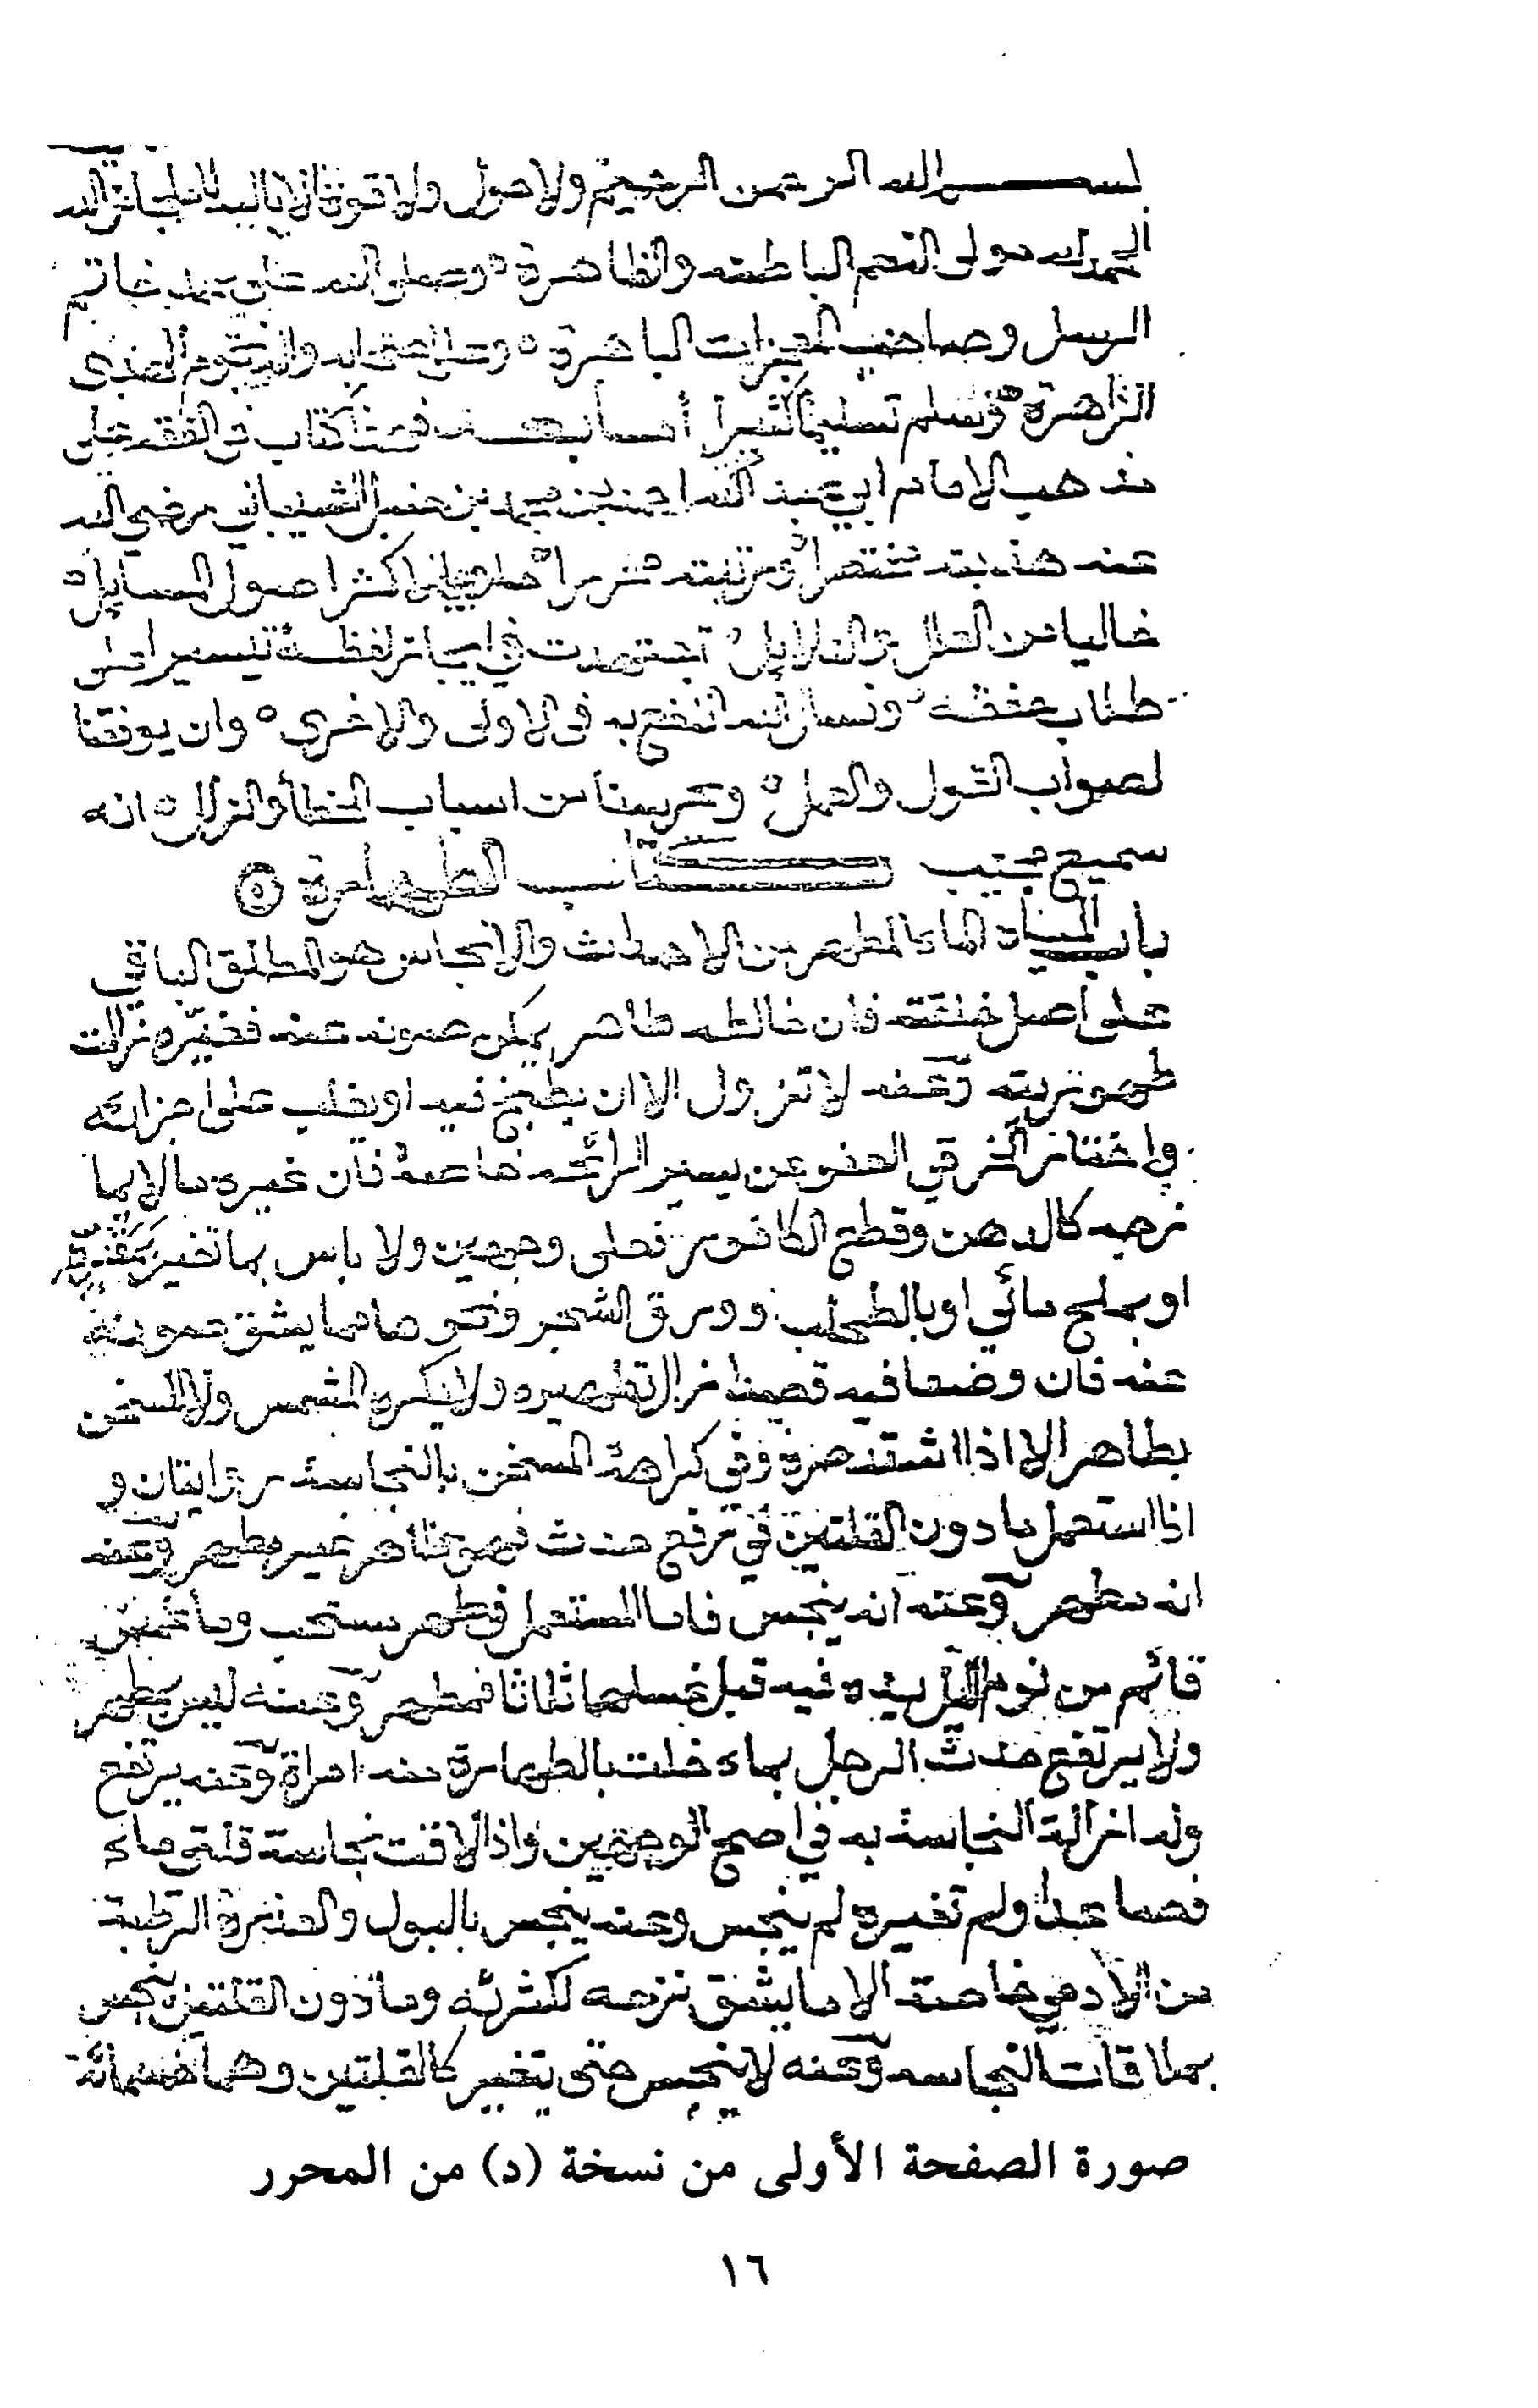 بسم الله الرحمن الرحيم ولا حول ولا قوة الا بالله
الحمد لله مولى النعم الباطنه والظاهرة ٥ وصلى الله على محمد خاتم
الرسل وصاحب المعجزات الباهرة ٥ وعلى اصحابه
الزاهرة ٥ وسلم تسليما كثيرا أما بعد فهذا كتاب في الفقه على
مذهب الامام ابي عبد الله احمد بن محمد بن حنبل الشيباني رضي الله
عنه هذبته مختصرا ورتبته محررا ٥ حاويا لاكثر اصول المسايل ٥
خاليا من العلل والدلايل ٥ اجتهدت في ايجاز لفظه تيسيرا على
طلاب حفظه ٥ ونسال الله النفع به في الاولى والاخرى ٥ وان يوفقنا
لصواب القول والعمل ٥ ويحرسنا من اسباب الخطأ والزلل ٥ انه
سميع مجيب كتاب الطهارة ٥
باب المياه الماء المطهر من الاحداث والانجاس هو المطلق الباقي
على اصل خلقته فان خالطه طاهر يمكن صونه عنه فغيّره زالت
طهوريته وعنه لا تزول الا ان يطبخ فيه او يغلب على اجزائه
واختار الخرقي العفو عن يسير الرائحه خاصة فان غيره ما لا يما
زجه كالدهن وقطع الكافور فعلى وجهين ولا باس بما تغير بمقره
او بملح مائي او بالطحلب وورق الشجر ونحوهما مما يشق صونه
عنه فان وضعا فيه قصدا زال تطهيره ولا يكره المشمس ولا المسخن
بطاهر الا اذا اشتد حره وفي كراهة المسخن بالنجاسة روايتان و
اذا استعمل ما دون القلتين في رفع حدث فهو طاهر غير مطهر وعنه
انه مطهر وعنه انه ينجس فاما المستعمل في طهر مستحب وما غمس
قائم من نوم الليل يده فيه قبل غسلها ثلاثا فمطهر وعنه ليس بمطهر
ولا يرتفع حدث الرجل بماء خلت بالطهارة منه امراة وعنه يرتفع
وله ازالة النجاسة به في اصح الوجهين واذا لاقت نجاسة قلتي ماء
فصاعدا ولم تغيره لم ينجس وعنه ينجس بالبول والعذرة الرطبة
من الادمي خاصة الا ما يشق نزحه لكثرته وما دون القلتين ينجس
بملاقات النجاسه وعنه لا ينجس حتى يتغير كالقلتين وهما خمسمائة
صورة الصفحة الأولى من نسخة (د) من المحرر
١٦